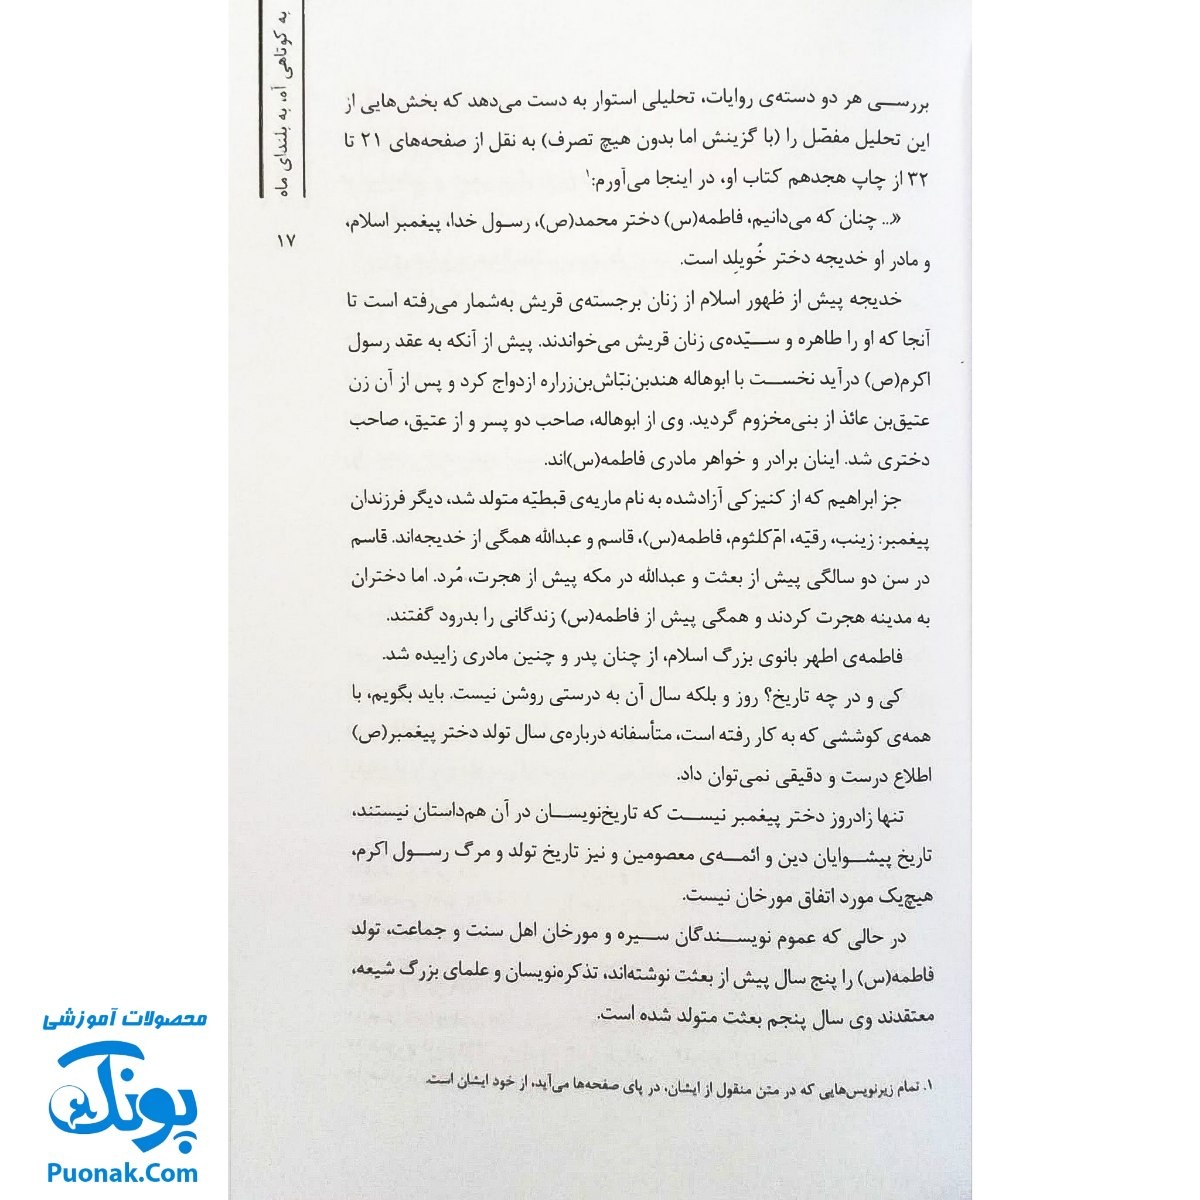 به کوتاهی آه، به بلندای ماه
۱۷
بررسی هر دو دسته‌ی روایات، تحلیلی استوار به دست می‌دهد که بخش‌هایی از
این تحلیل مفصّل را (با گزینش اما بدون هیچ تصرف) به نقل از صفحه‌های ۲۱ تا
۳۲ از چاپ هجدهم کتاب او، در اینجا می‌آورم:۱
«... چنان که می‌دانیم، فاطمه(س) دختر محمد(ص)، رسول خدا، پیغمبر اسلام،
و مادر او خدیجه دختر خُویلِد است.
خدیجه پیش از ظهور اسلام از زنان برجسته‌ی قریش به‌شمار می‌رفته است تا
آنجا که او را طاهره و سیّده‌ی زنان قریش می‌خواندند. پیش از آنکه به عقد رسول
اکرم(ص) درآید نخست با ابوهاله هندبن‌نبّاش‌بن‌زراره ازدواج کرد و پس از آن زن
عتیق‌بن عائذ از بنی‌مخزوم گردید. وی از ابوهاله، صاحب دو پسر و از عتیق، صاحب
دختری شد. اینان برادر و خواهر مادری فاطمه(س)اند.
جز ابراهیم که از کنیزکی آزادشده به نام ماریه‌ی قبطیّه متولد شد، دیگر فرزندان
پیغمبر: زینب، رقیّه، امّ‌کلثوم، فاطمه(س)، قاسم و عبدالله همگی از خدیجه‌اند. قاسم
در سن دو سالگی پیش از بعثت و عبدالله در مکه پیش از هجرت، مُرد. اما دختران
به مدینه هجرت کردند و همگی پیش از فاطمه(س) زندگانی را بدرود گفتند.
فاطمه‌ی اطهر بانوی بزرگ اسلام، از چنان پدر و چنین مادری زاییده شد.
کی و در چه تاریخ؟ روز و بلکه سال آن به درستی روشن نیست. باید بگویم، با
همه‌ی کوششی که به کار رفته است، متأسفانه درباره‌ی سال تولد دختر پیغمبر(ص)
اطلاع درست و دقیقی نمی‌توان داد.
تنها زادروز دختر پیغمبر نیست که تاریخ‌نویسان در آن هم‌داستان نیستند،
تاریخ پیشوایان دین و ائمه‌ی معصومین و نیز تاریخ تولد و مرگ رسول اکرم،
هیچ‌یک مورد اتفاق مورخان نیست.
در حالی که عموم نویسندگان سیره و مورخان اهل سنت و جماعت، تولد
فاطمه(س) را پنج سال پیش از بعثت نوشته‌اند، تذکره‌نویسان و علمای بزرگ شیعه،
معتقدند وی سال پنجم بعثت متولد شده است.
۱. تمام زیرنویس‌هایی که در متن منقول از ایشان، در پای صفحه‌ها می‌آید، از خود ایشان است.
محصولات آموزشی
پونک
Puonak.Com